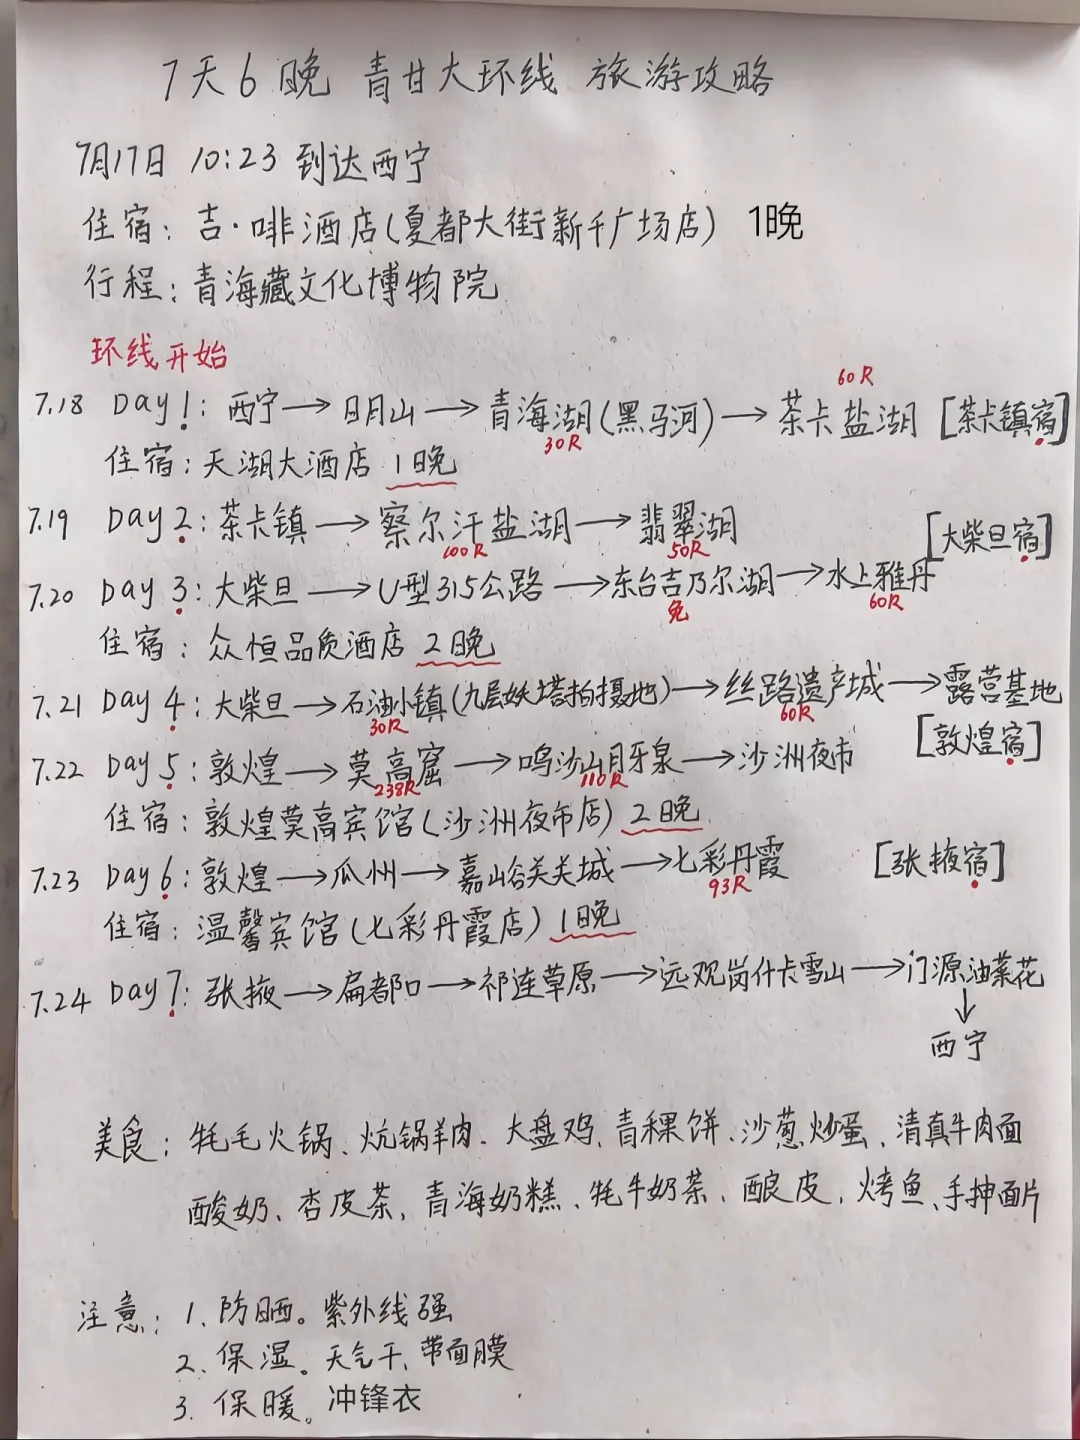 7天6晚 青甘大环线 旅游攻略
7月17日 10:23 到达西宁
住宿：吉·啡酒店(夏都大街新千广场店) 1晚
行程：青海藏文化博物院
环线开始
60R
7.18 Day 1：西宁→日月山→青海湖(黑马河)→茶卡盐湖 [茶卡镇宿]
30R
住宿：天湖大酒店 1晚
7.19 Day 2：茶卡镇→察尔汗盐湖→翡翠湖 [大柴旦宿]
100R 50R
7.20 Day 3：大柴旦→U型315公路→东台吉乃尔湖→水上雅丹
免 60R
住宿：众恒品质酒店 2晚
7.21 Day 4：大柴旦→石油小镇(九层妖塔拍摄地)→丝路遗产城→露营基地
30R 60R [敦煌宿]
7.22 Day 5：敦煌→莫高窟→鸣沙山月牙泉→沙洲夜市
238R 110R
住宿：敦煌莫高宾馆(沙洲夜市店) 2晚
7.23 Day 6：敦煌→瓜州→嘉峪关关城→七彩丹霞 [张掖宿]
93R
住宿：温馨宾馆(七彩丹霞店) 1晚
7.24 Day 7：张掖→扁都口→祁连草原→远观岗什卡雪山→门源油菜花
↓
西宁
美食：牦毛火锅、炕锅羊肉、大盘鸡、青稞饼、沙葱炒蛋、清真牛肉面
酸奶、杏皮茶、青海奶糕、牦牛奶茶、酿皮、烤鱼、手抻面片
注意：1、防晒。紫外线强
2、保湿。天气干、带面膜
3、保暖。冲锋衣